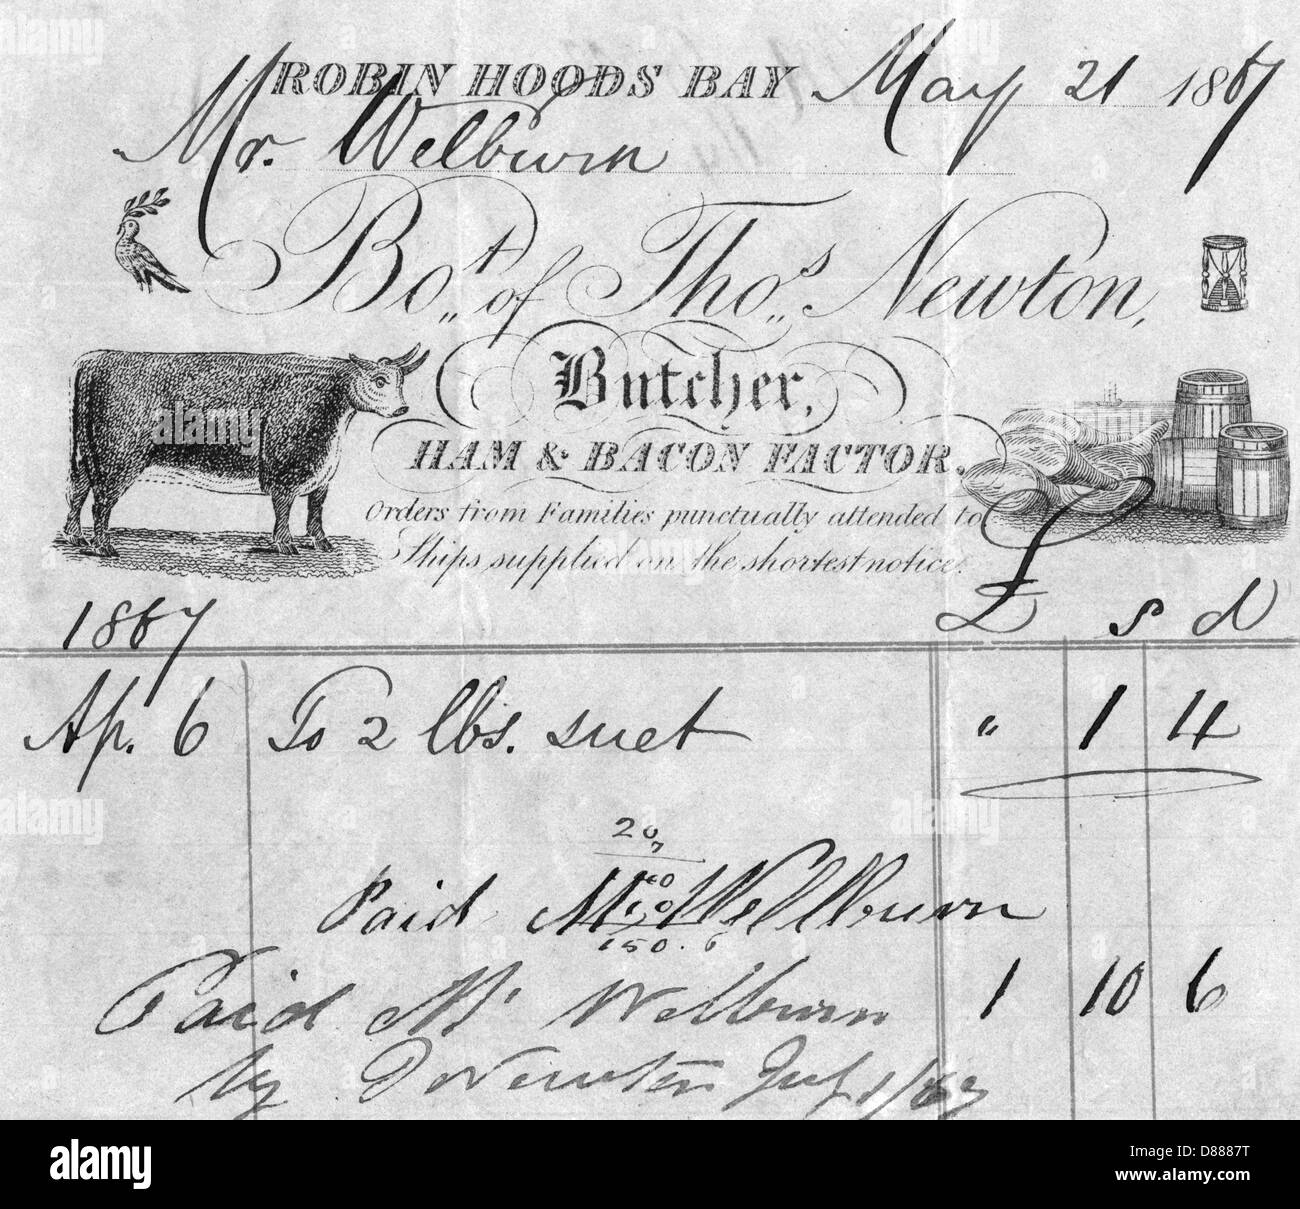 ROBIN HOODS BAY May 21 1867
Mr. Welburn
Bo,,t of Tho,,s Newton,
Butcher,
HAM & BACON FACTOR.
Orders from Families punctually attended to
Ships supplied on the shortest notice.
1867 £ s d
Ap. 6 To 2 lbs. suet " 1 4
20
Paid Mr Wellburn
150. 6
Paid Mr Welburn 1 10 6
by Newton July 1/67
alamy
Image ID: D8887T
www.alamy.com